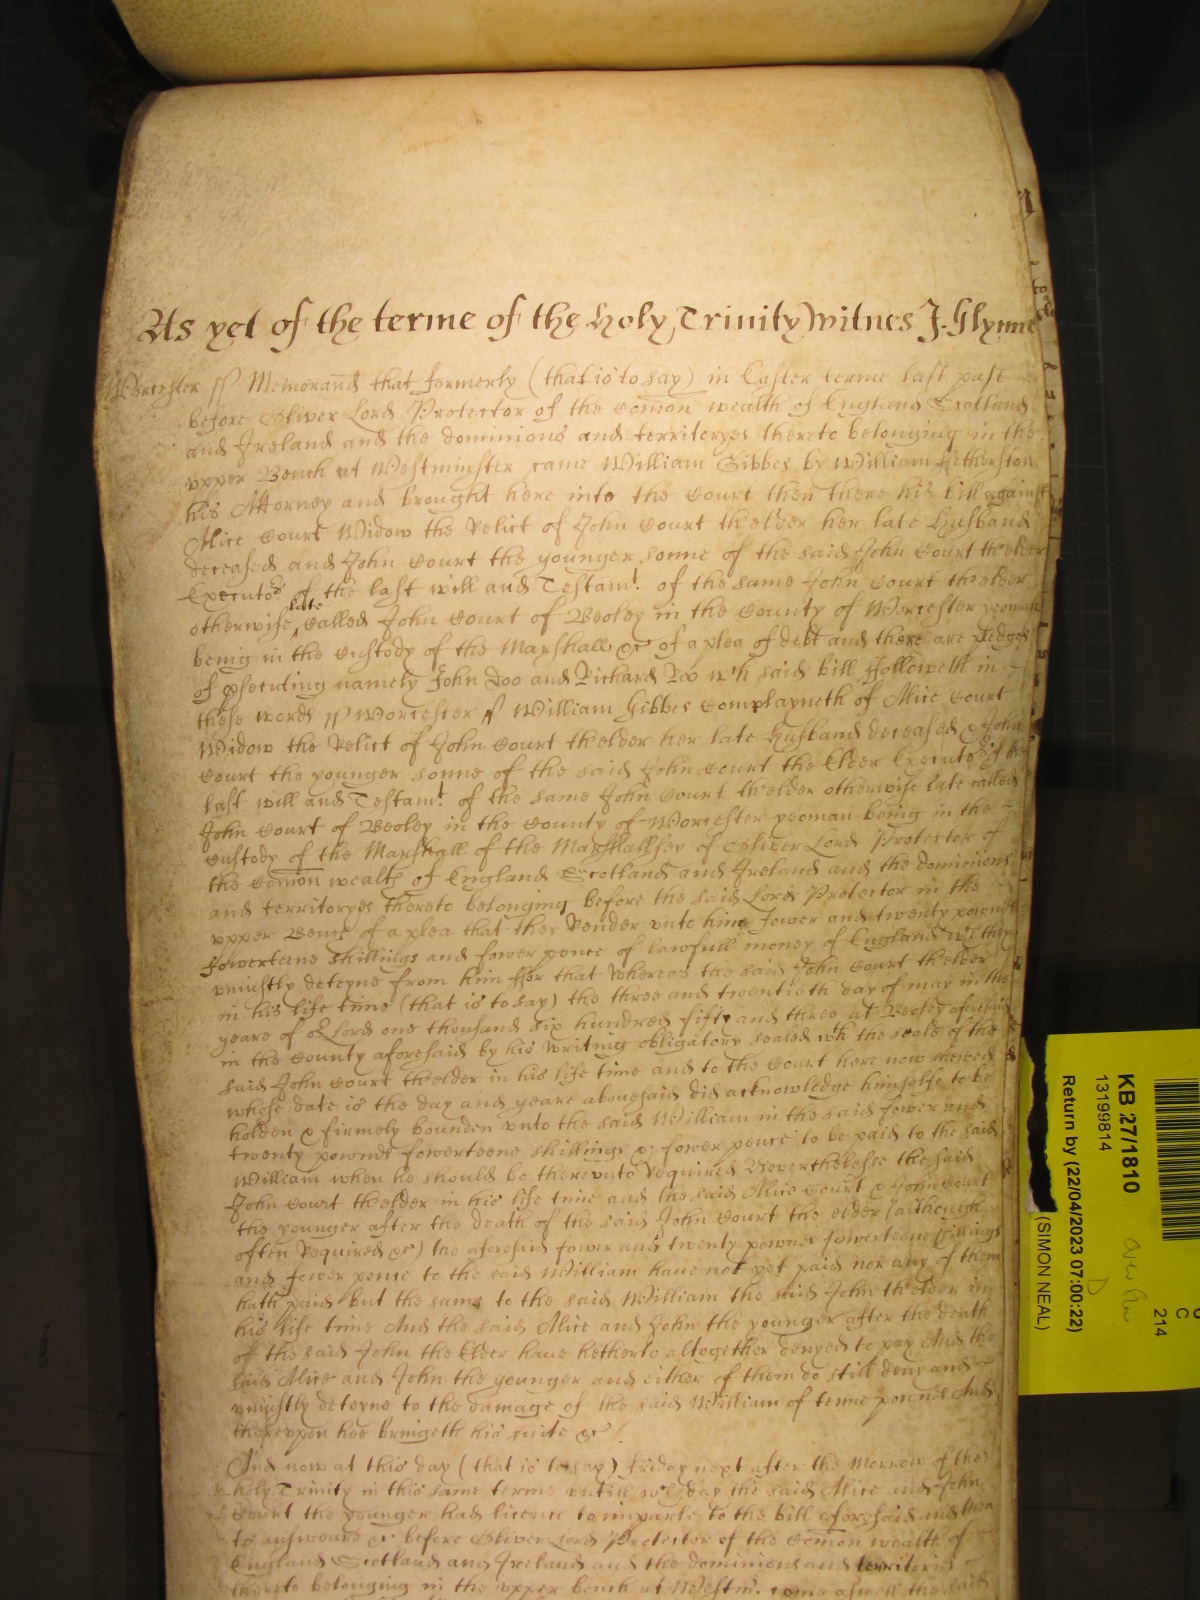 As yet of the terme of the holy Trinity witnes J. Glynne
Worcester ss Memorand that formerly (that is to say) in Easter terme last past
before Oliver Lord Protector of the Comon wealth of England Scotland
and Ireland and the dominions and territoryes thereto belonging in the
vpper Bench at Westminster came William Gibbes by William Fetherston
his Attorney and brought here into the Court then there his bill against
Alice Court Widow the Relict of John Court thelder her late Husband
deceased and John Court the younger sonne of the said John Court thelder
Executors of the last will and Testamt. of the same John Court thelder
otherwise late called John Court of Beoley in the County of Worcester yeoman
being in the Custody of the Marshall &c of a plea of debt and there are pledges
of psecuting namely John Doo and Richard Roo wch said bill ffolloweth in
these words ss Worcester ss William Gibbes Complayneth of Alice Court
Widow the Relict of John Court thelder her late Husband deceased & John
Court the younger sonne of the said John Court the Elder Executors of the
last will and Testamt. of the same John Court thelder otherwise late called
John Court of Beoley in the County of Worcester yeoman being in the
Custody of the Marshall of the Marshallsey of Oliver Lord Protector of
the Comon wealth of England Scotland and Ireland and the dominions
and territoryes thereto belonging before the said Lord Protector in the
vpper Bench of a plea that they Render vnto him fower and twenty pownds
fowerteene shillings and fower pence of lawfull money of England wch they
vniustly deteyne from him ffor that Whereas the said John Court thelder
in his life time (that is to say) the three and twentieth day of may in the
yeare of or Lord one thousand six hundred fifty and three at Beoley aforesaid
in the County aforesaid by his Writing obligatory sealed wth the seale of the
said John Court thelder in his life time and to the Court here now shewed
whose date is the day and yeare abouesaid did acknowledge himselfe to be
holden & firmely bounden vnto the said William in the said fower and
twenty pownds fowerteene shillings & fower pence to be paid to the said
William when he should be therevnto Required Neverthelesse the said
John Court thelder in his life time and the said Alice Court & John Court
the younger after the death of the said John Court the elder (although
often Required &c) the aforesaid fower and twenty pownds fowerteene shillings
and fower pence to the said William haue not yet paid nor any of them
hath paid but the same to the said William the said John thelder in
his life time And the said Alice and John the younger after the death
of the said John the Elder haue hetherto altogether denyed to pay And the
said Alice and John the younger and either of them do still deny and
vniustly deteyne to the damage of the said William of tenne pownds And
therevpon hee bringeth his suite &c /
And now at this day (that is to say) friday next after the Morrow of the
holy Trinity in this same terme vntill wch day the said Alice and John
Court the younger had licence to imparle to the bill aforesaid and then
to answeare &c before Oliver Lord Protector of the Comon wealth of
England Scotland and Ireland and the dominions and territories
thereto belonging in the vpper bench at Westm. came aswell the said
KB 27/1810
13199814
Return by (22/04/2023 07:00:22)
(SIMON NEAL)
C
214
D